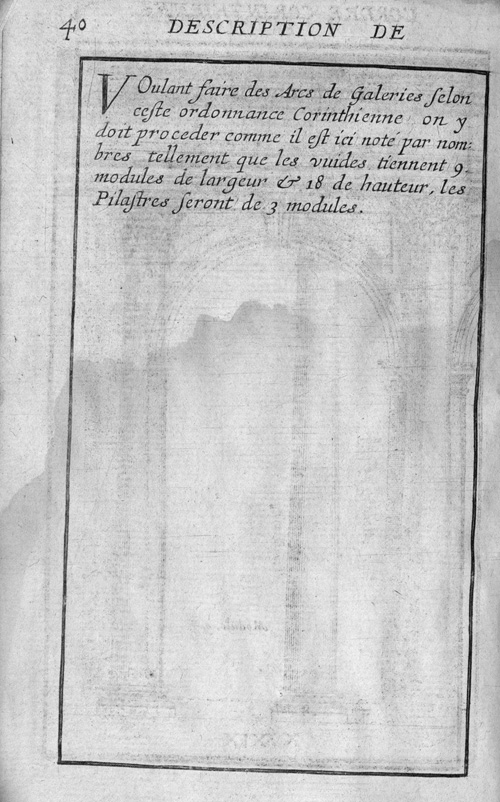 40 DESCRIPTION DE
VOulant faire des Arcs de Galeries selon
ceste ordonnance Corinthienne on y
doit proceder comme il est ici noté par nom:
bres tellement que les vuides tiennent 9.
modules de largeur & 18 de hauteur, les
Pilastres seront de 3 modules.